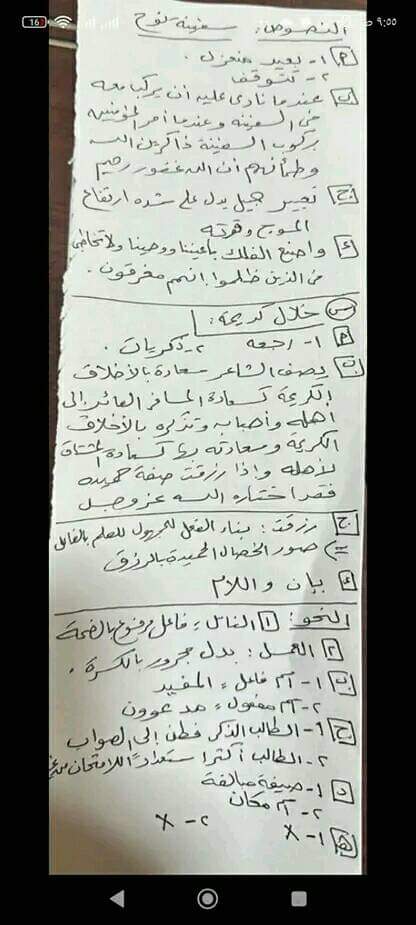 ٩:٥٥
16
النصوص: سفينة نوح
أ ١- بعيد منعزل.
٢- تتوقف
ب عندما نادى عليه أن يركب معه
في السفينة وعندما أمر المؤمنين
بركوب السفينة ذاكرين الله
وطمأنهم أن الله غفور رحيم
ج تعبير جميل يدل على شدة ارتفاع
الموج وقوته
د واصنع الفلك بأعيننا ووحينا ولا تخاطبني
في الذين ظلموا إنهم مغرقون.
س خلال كريمة:
أ ١- راجعه ٢- ذكريات.
ب يصف الشاعر سعادة بالأخلاق
الكريمة كسعادة المسافر العائد إلى
أهله وأحبابه وتذكره بالأخلاق
الكريمة وسعادته بها كسعادة المشتاق
لأهله وإذا رزقت صفة حميدة
فقد اختاره الله عز وجل
ج رزقت: بناء الفعل للمجهول للعلم بالفاعل
صور الخصال الحميدة بالرزق
د بيان واللام
النحو: ١ النائل: فاعل مرفوع بالضمة
٢ العمل: بدل مجرور بالكسرة.
ب ١- اسم فاعل = المفيد
٢- اسم مفعول = مدعوون
ج ١- الطالب الذكر فطن إلى الصواب
٢- الطالب أكثر استعداداً للامتحان من
د ١- صيغة مبالغة
٢- اسم مكان
هـ ١- X ٢- X